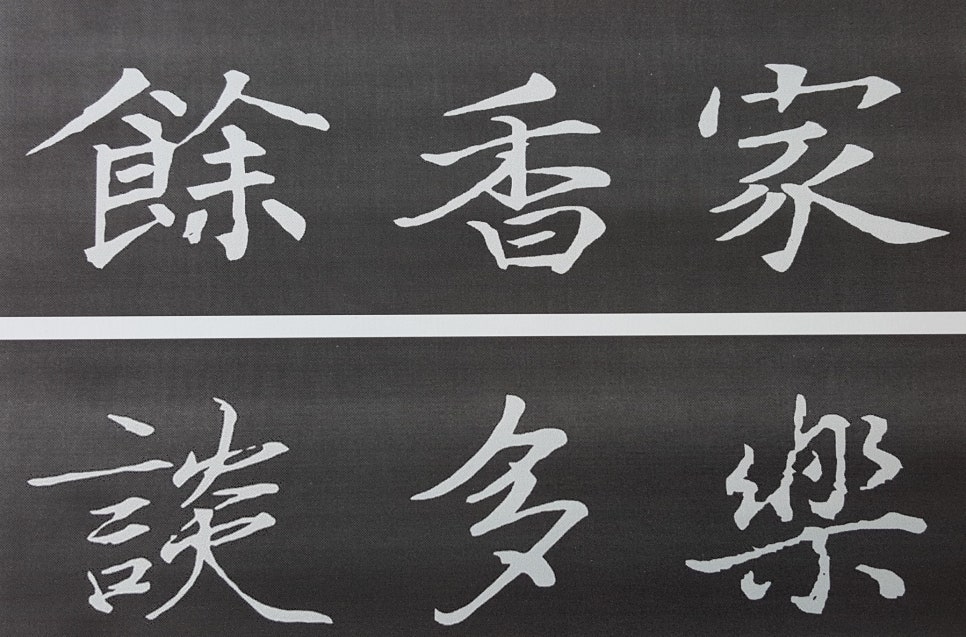 家香餘
樂多談